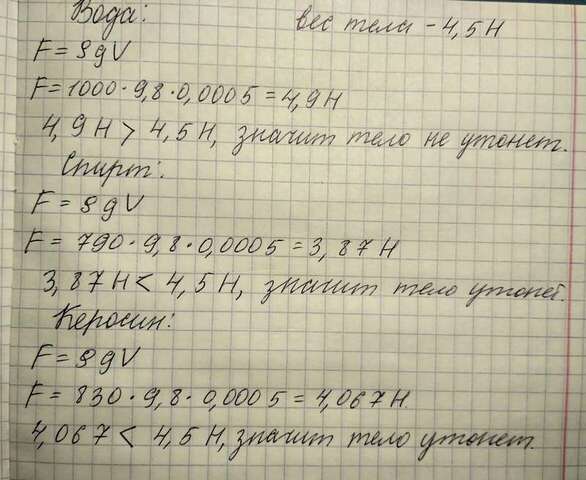 Вода: вес тела - 4,5 Н
F = ρgV
F = 1000 · 9,8 · 0,0005 = 4,9 Н
4,9 Н > 4,5 Н, значит тело не утонет.
Спирт:
F = ρgV
F = 790 · 9,8 · 0,0005 = 3,87 Н
3,87 Н < 4,5 Н, значит тело утонет.
Керосин:
F = ρgV
F = 830 · 9,8 · 0,0005 = 4,067 Н
4,067 < 4,5 Н, значит тело утонет.